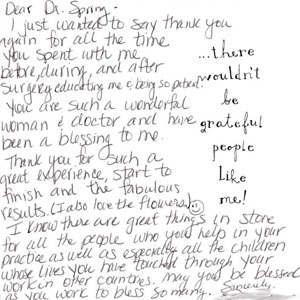 Dear Dr. Spring -
I just wanted to say thank you
again for all the time
you spent with me
before, during, and after
surgery educating me & being so patient.
You are such a wonderful
woman & doctor and have
been a blessing to me.
Thank you for such a
great experience, start to
finish and the fabulous
results. (I also love the flowers)
I know there are great things in store
for all the people who you help in your
practice as well as especially all the children
whose lives you have touched through your
work in other countries. May you be blessed
as you work to bless so many. Sincerely,
...there
wouldn't
be
grateful
people
like
me!